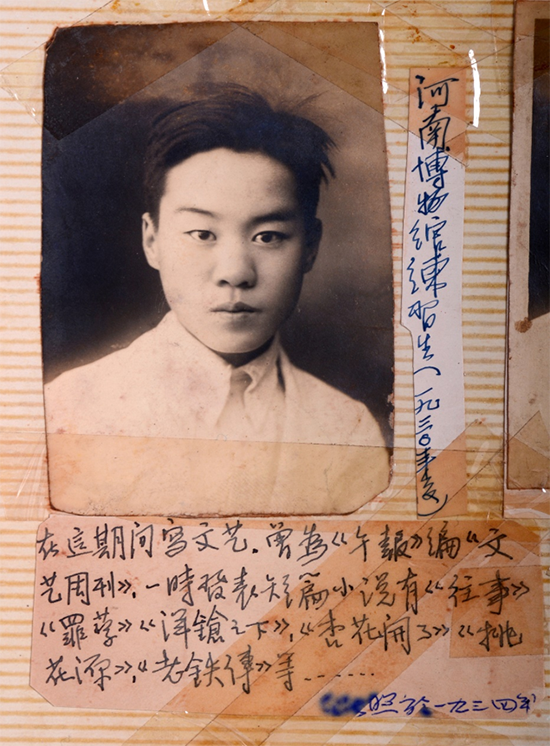 河南博物館練習生（一九三〇年夏）
在這期间写文艺，曾為《午報》编《文
艺周刊》，一時發表短篇小说有《往事》
《罪孽》《洋鎗之下》，《杏花開了》《桃
花源》，《老鉄傳》等……
照於一九三四年